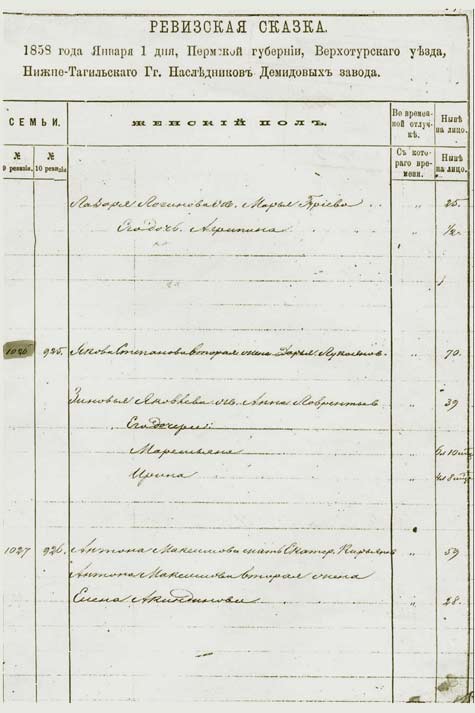 РЕВИЗСКАЯ СКАЗКА.
1858 года Января 1 дня, Пермской губерніи, Верхотурскаго уѣзда,
Нижне-Тагильскаго Гг. Наслѣдниковъ Демидовыхъ завода.
СЕМЬИ.
ЖЕНСКІЙ ПОЛЪ.
Во времен-
ной отлуч-
кѣ.
Нынѣ
на лицо.
№
9 ревизіи.
№
10 ревизіи.
Съ кото-
раго вре-
мени.
Нынѣ
на лицо.
Лазаря Логинова Марья 25.
Его дочь Агрипина " 1/2
1026 925. Якова Степанова вторая жена Дарья Лукоянов. " 70.
Зиновья Яковлева Анна Лаврентьев " 39
Его дочери:
Маремьяна "
Ирина "
1027 926. Антона Максимова мать Екатер. " 59
Антона Максимова вторая жена
Елена Акиндинова " 28.